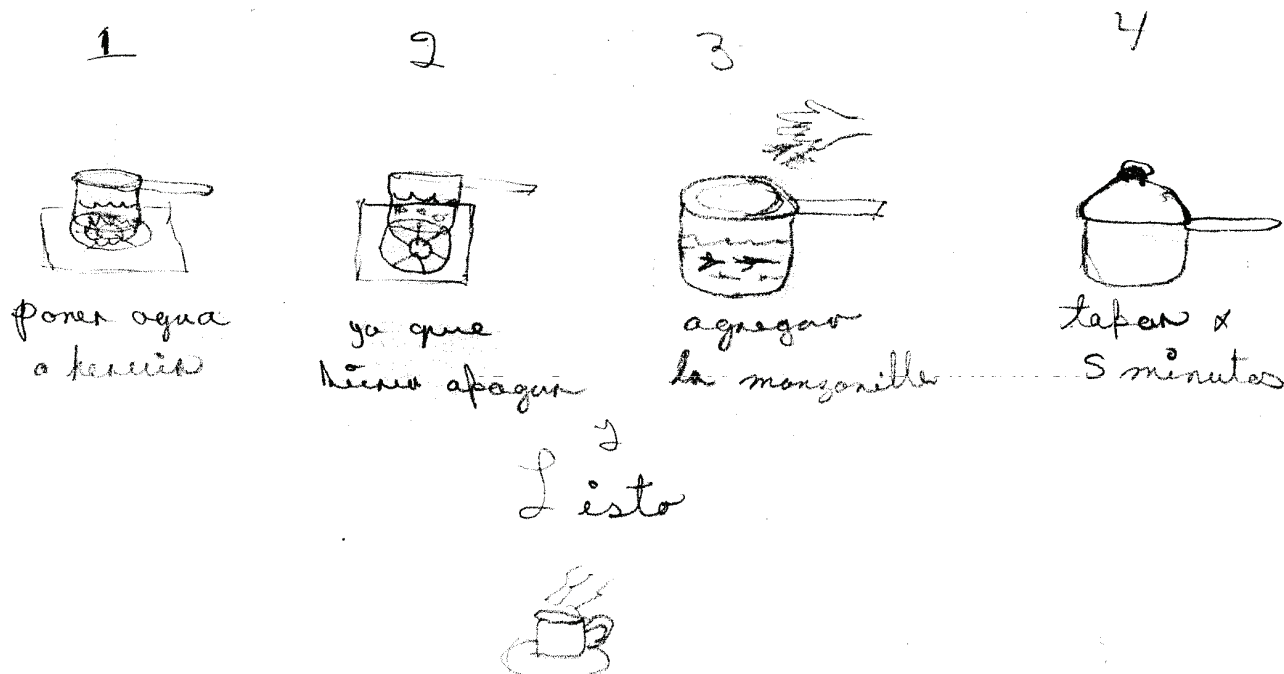 1
2
3
4
poner agua
a hervir
ya que
hirvio apagar
agregar
la manzanilla
tapar x
5 minutos
y
Listo